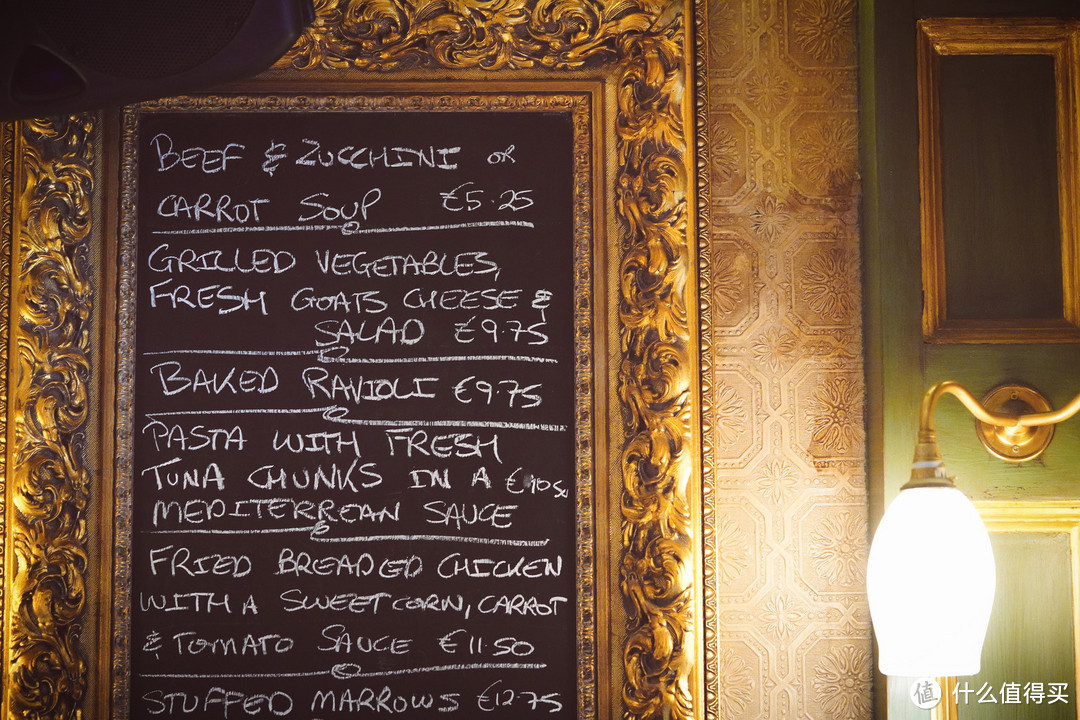 BEEF & ZUCCHINI OR
CARROT SOUP €5.25
GRILLED VEGETABLES,
FRESH GOATS CHEESE &
SALAD €9.75
BAKED RAVIOLI €9.75
PASTA WITH FRESH
TUNA CHUNKS IN A €10.50
MEDITERREAN SAUCE
FRIED BREADED CHICKEN
WITH A SWEETCORN, CARROT
& TOMATO SAUCE €11.50
STUFFED MARROWS €12.75
值 什么值得买